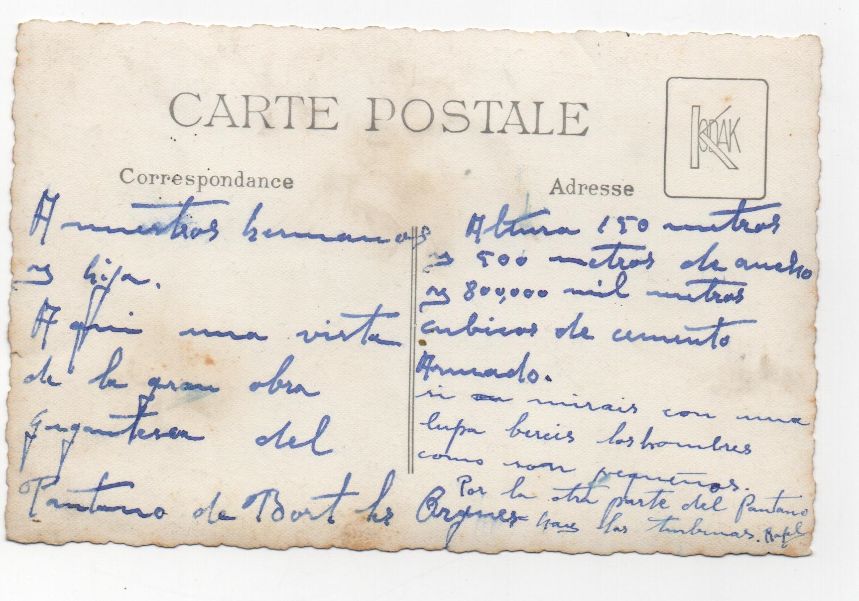 CARTE POSTALE
KODAK
Correspondance
Adresse
A nuestros hermanos
y hija.
A qui una vista
de la gran obra
gigantesca del
Pantano de Bort les Orgues
Altura 150 metros
y 500 metros de ancho
y 800,000 mil metros
cubicos de cemento
Armado.
si mirais con una
lupa bereis los hombres
como son pequeños.
Por la otra parte del Pantano
las turbinas. Rafel